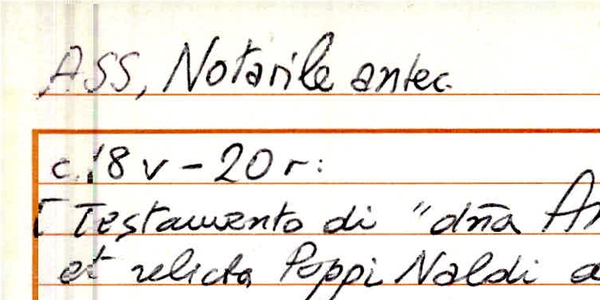 ASS, Notarile antec.
c. 18v - 20r:
[Testamento di "dña
et relicta Poppi Naldi